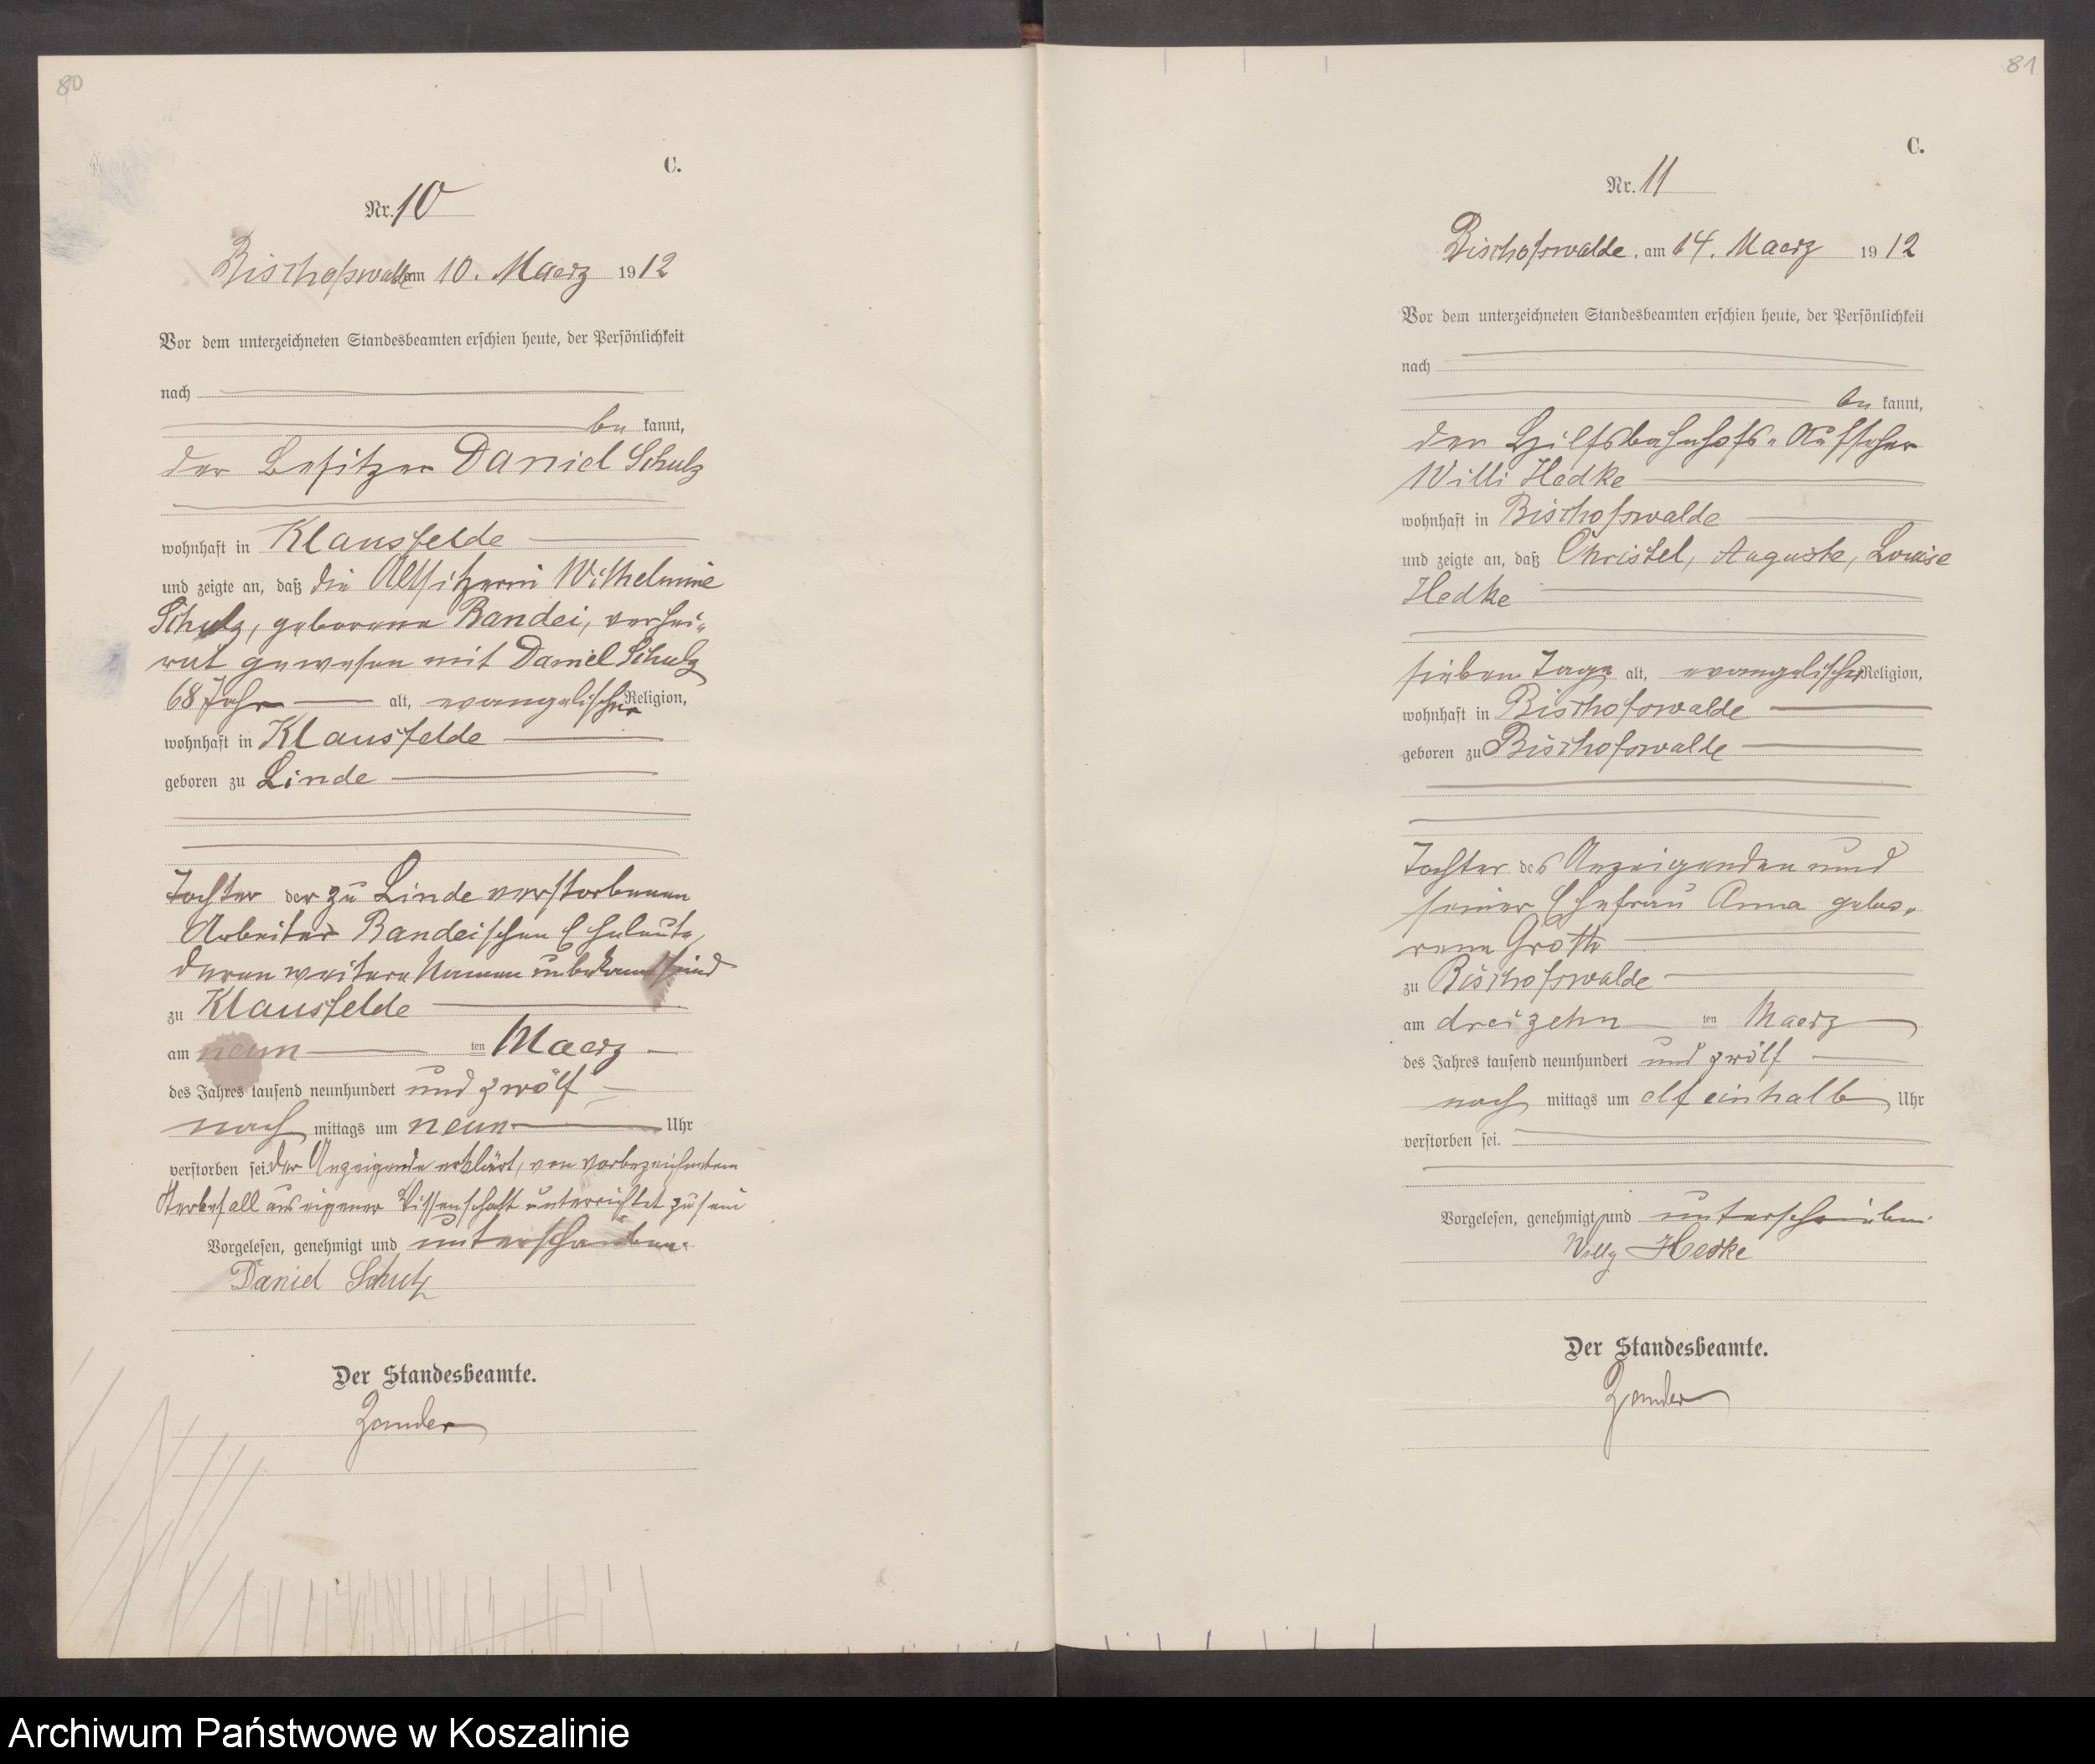 80
C.
Nr. 10
Bischofswalde am 10. Maerz 1912
Vor dem unterzeichneten Standesbeamten erschien heute, der Persönlichkeit
nach
be kannt,
der Besitzer Daniel Schulz
wohnhaft in Klausfelde
und zeigte an, daß die Altsitzerin Wilhelmine
Schulz, geborene Bandei, verhei-
rat gewesen mit Daniel Schulz
68 Jahr alt, evangelischer Religion,
wohnhaft in Klausfelde
geboren zu Linde
Tochter der zu Linde verstorbenen
Arbeiter Bandeischen Eheleute,
deren weitere Namen unbekannt sind
zu Klausfelde
am neun ten Maerz
des Jahres tausend neunhundert und zwölf
nach mittags um neun Uhr
verstorben sei. Der Anzeigende erklärt, von vorbezeichnetem
Sterbefall aus eigener Wissenschaft unterrichtet zu sein
Vorgelesen, genehmigt und unterschrieben.
Daniel Schulz
Der Standesbeamte.
Zander
81
C.
Nr. 11
Bischofswalde, am 14. Maerz 1912
Vor dem unterzeichneten Standesbeamten erschien heute, der Persönlichkeit
nach
be kannt,
der Hilfsbahnhofs-Aufseher
Willi Hedke
wohnhaft in Bischofswalde
und zeigte an, daß Christel, Auguste, Louise
Hedke
sieben Tage alt, evangelischer Religion,
wohnhaft in Bischofswalde
geboren zu Bischofswalde
Tochter des Anzeigenden und
seiner Ehefrau Anna gebo-
rene Groth
zu Bischofswalde
am dreizehn ten Maerz
des Jahres tausend neunhundert und zwölf
nach mittags um elf einhalb Uhr
verstorben sei.
Vorgelesen, genehmigt und unterschrieben.
Willy Hedke
Der Standesbeamte.
Zander
Archiwum Państwowe w Koszalinie